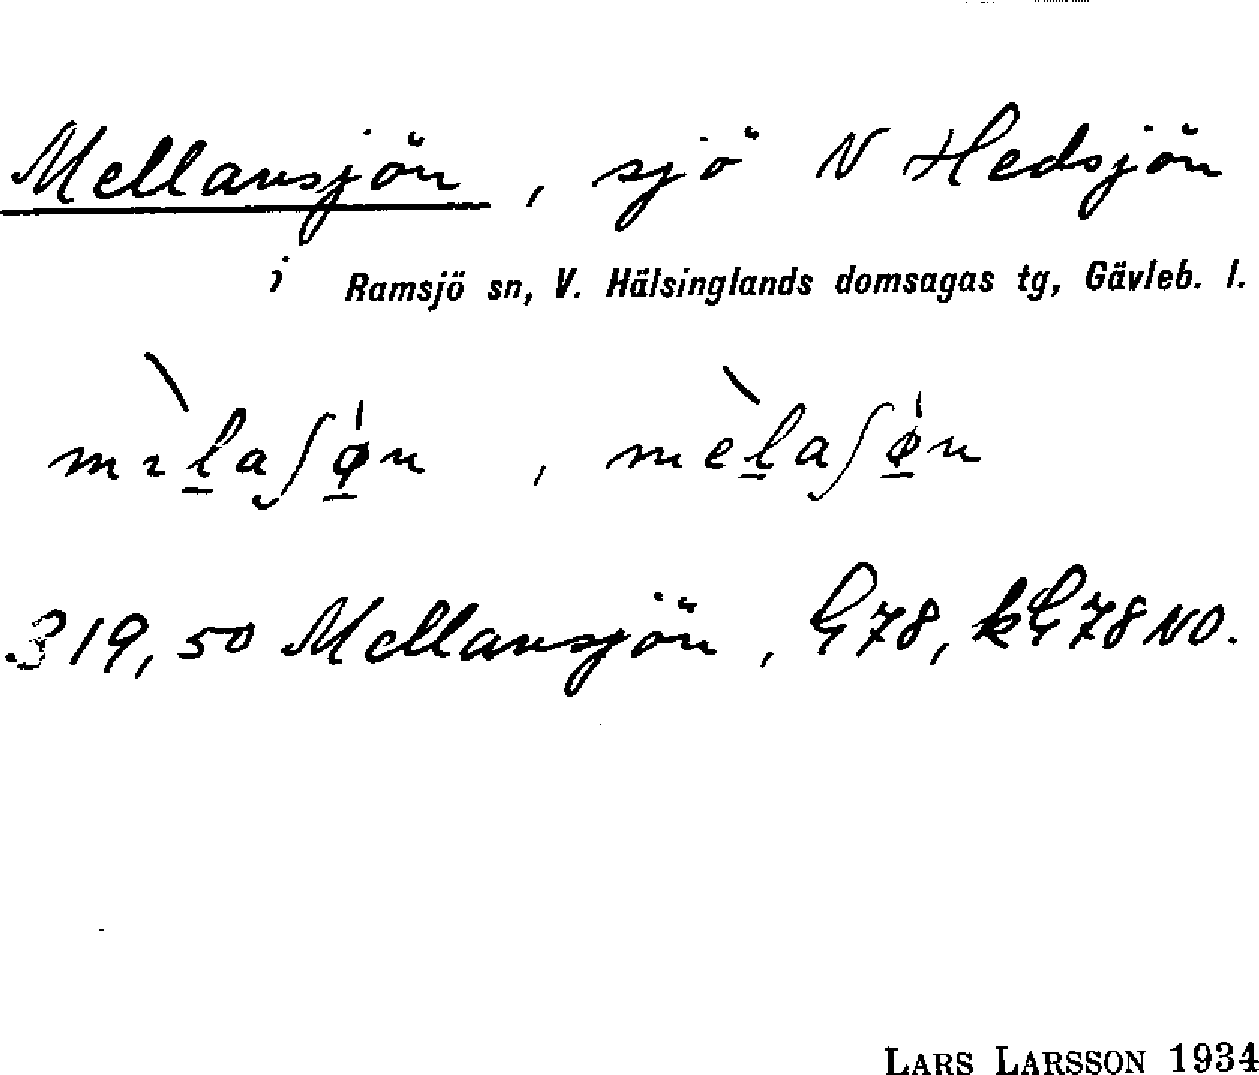 Mellansjön, sjö N Hedsjön
i Ramsjö sn, V. Hälsinglands domsagas tg, Gävleb. l.
319,50 Mellansjön, G78, kG78NO.
LARS LARSSON 1934